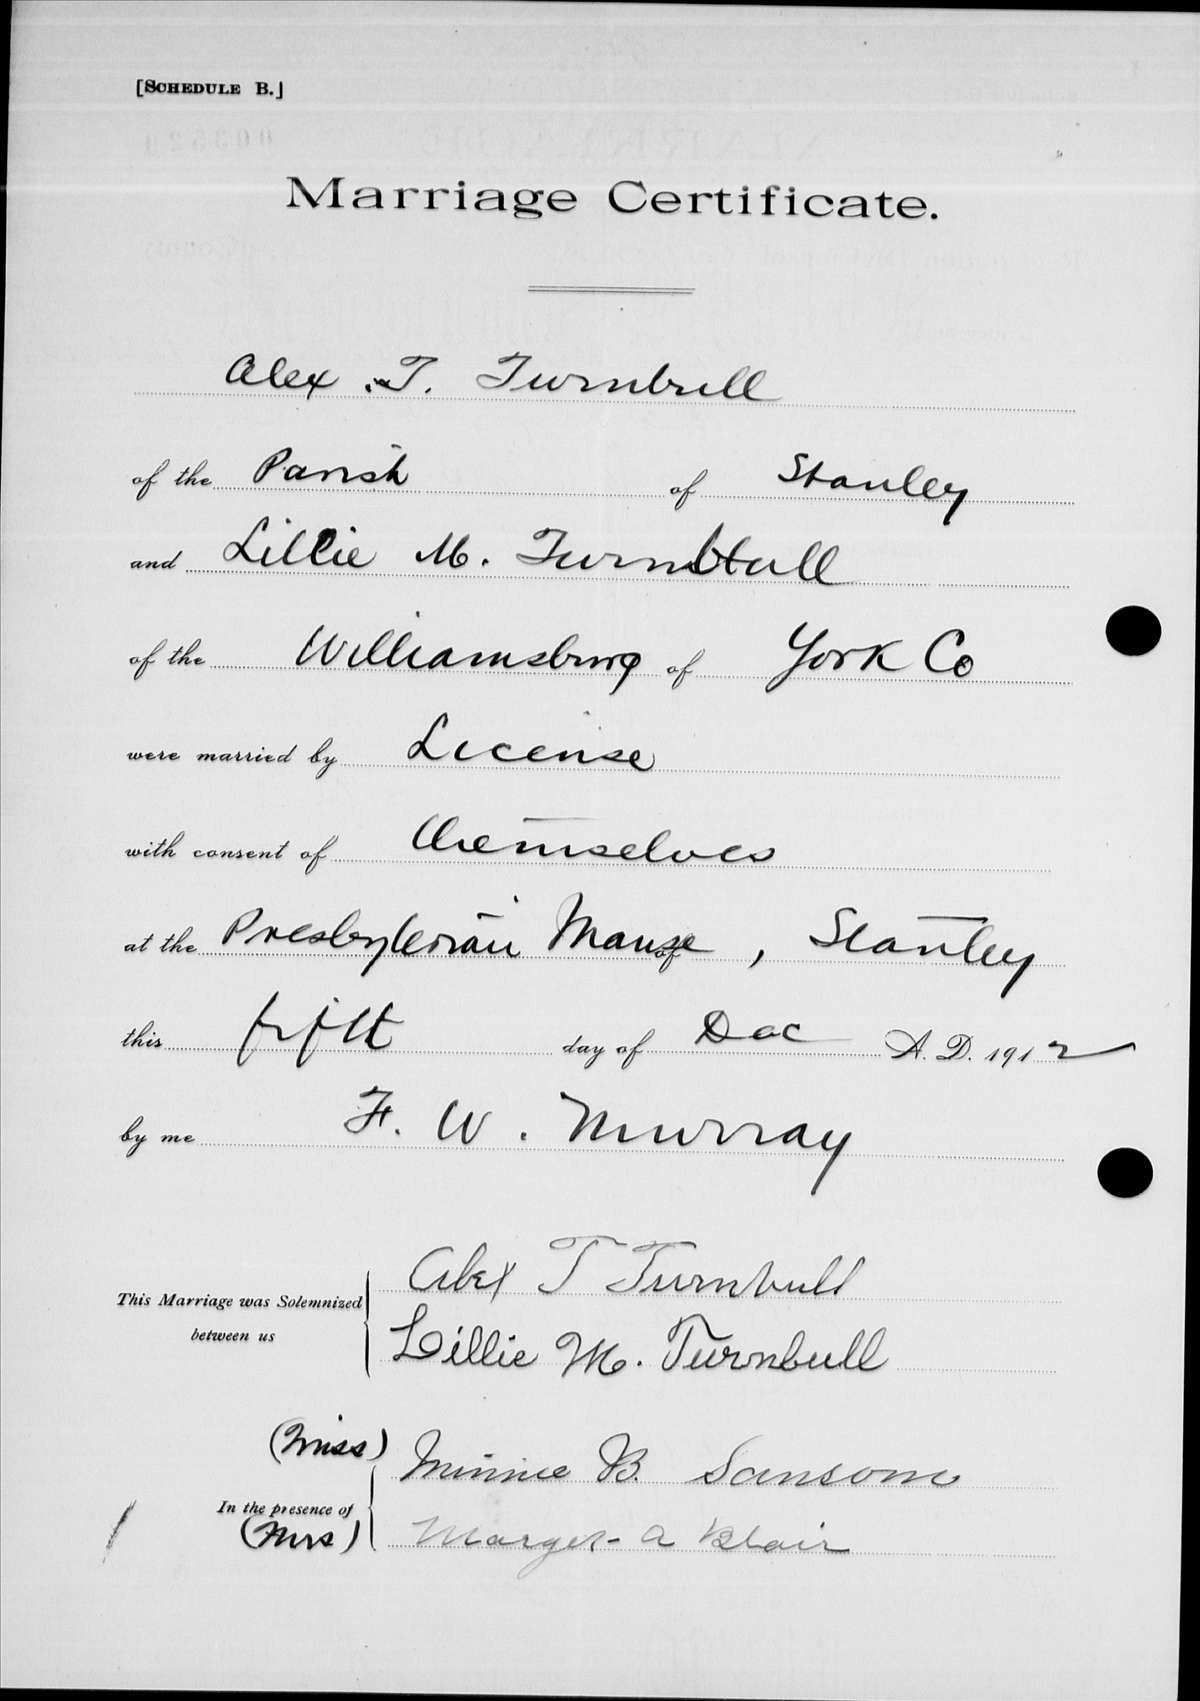 [SCHEDULE B.]
Marriage Certificate.
Alex. T. Turnbull
of the Parish of Stanley
and Lillie M. Turnbull
of the Williamsburg of York Co
were married by License
with consent of themselves
at the Presbyterian Manse of , Stanley
this fifth day of Dec A. D. 1912
by me F. W. Murray
This Marriage was Solemnized between us
Alex T Turnbull
Lillie M. Turnbull
(Miss) Minnie B. Sansom
In the presence of
(Mrs) Marget A Blair